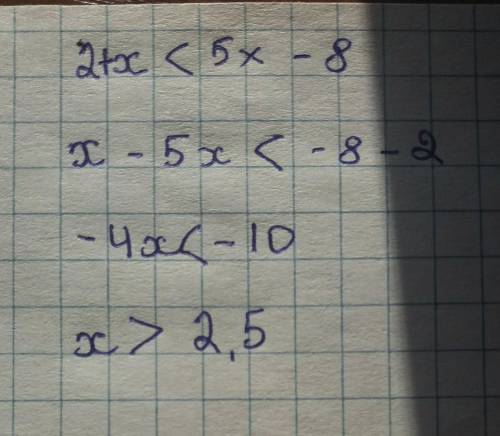 2+x < 5x - 8
x - 5x < - 8 - 2
-4x < -10
x > 2,5